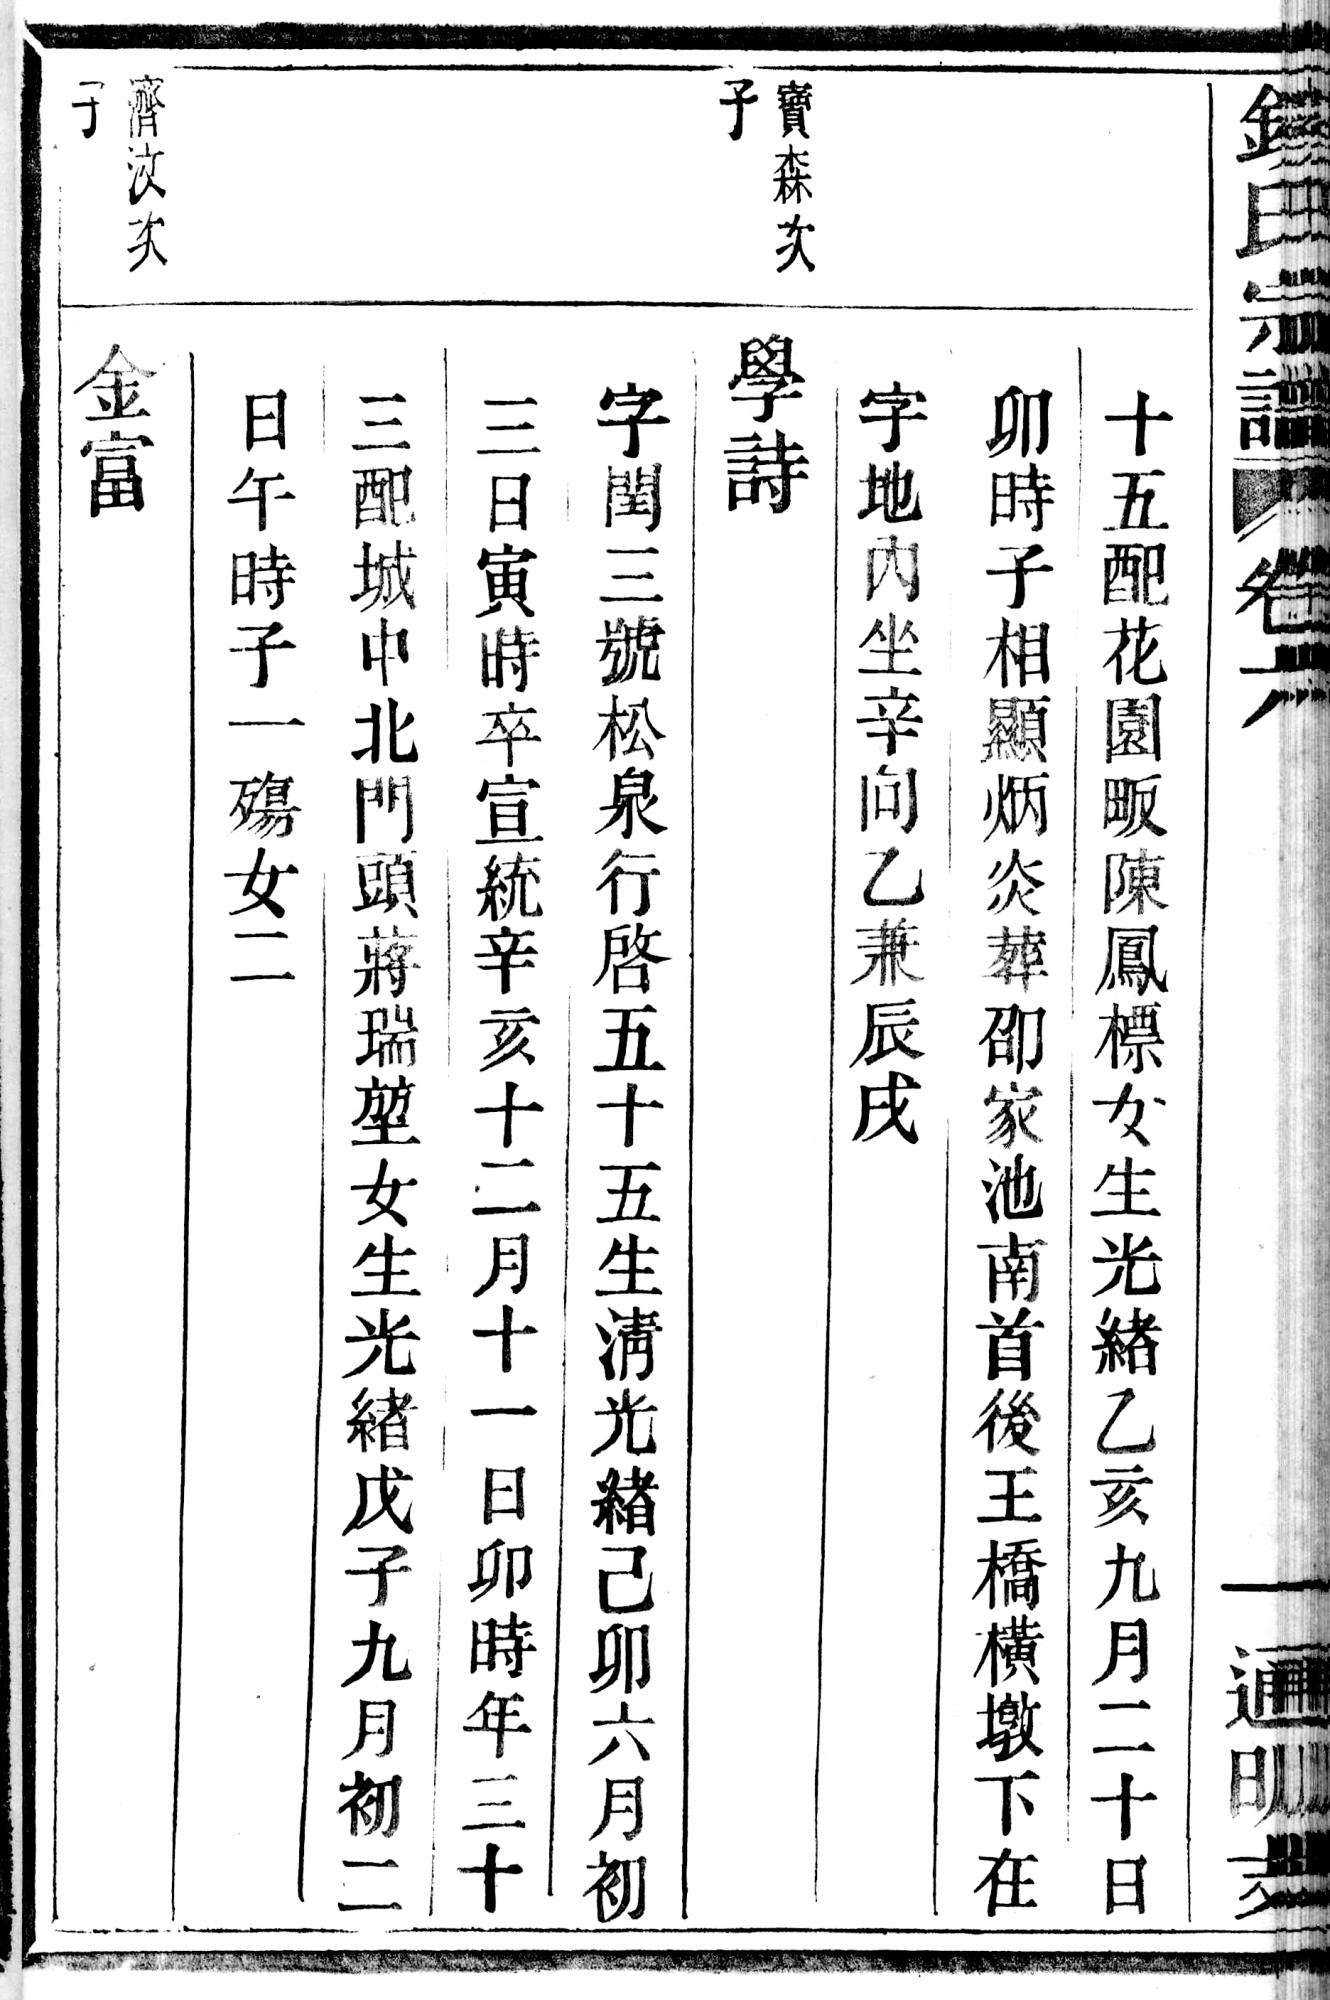 氏宗譜 卷六
十五配花園畈陳鳳標女生光緒乙亥九月二十日
卯時子相顯炳炎葬邵家池南首後王橋橫墩下在
字地內坐辛向乙兼辰戌
寶森次
子
學詩
字閏三號松泉行啓五十五生淸光緒己卯六月初
三日寅時卒宣統辛亥十二月十一日卯時年三十
三配城中北門頭蔣瑞堃女生光緒戊子九月初二
日午時子一殤女二
濟汶次
子
金富